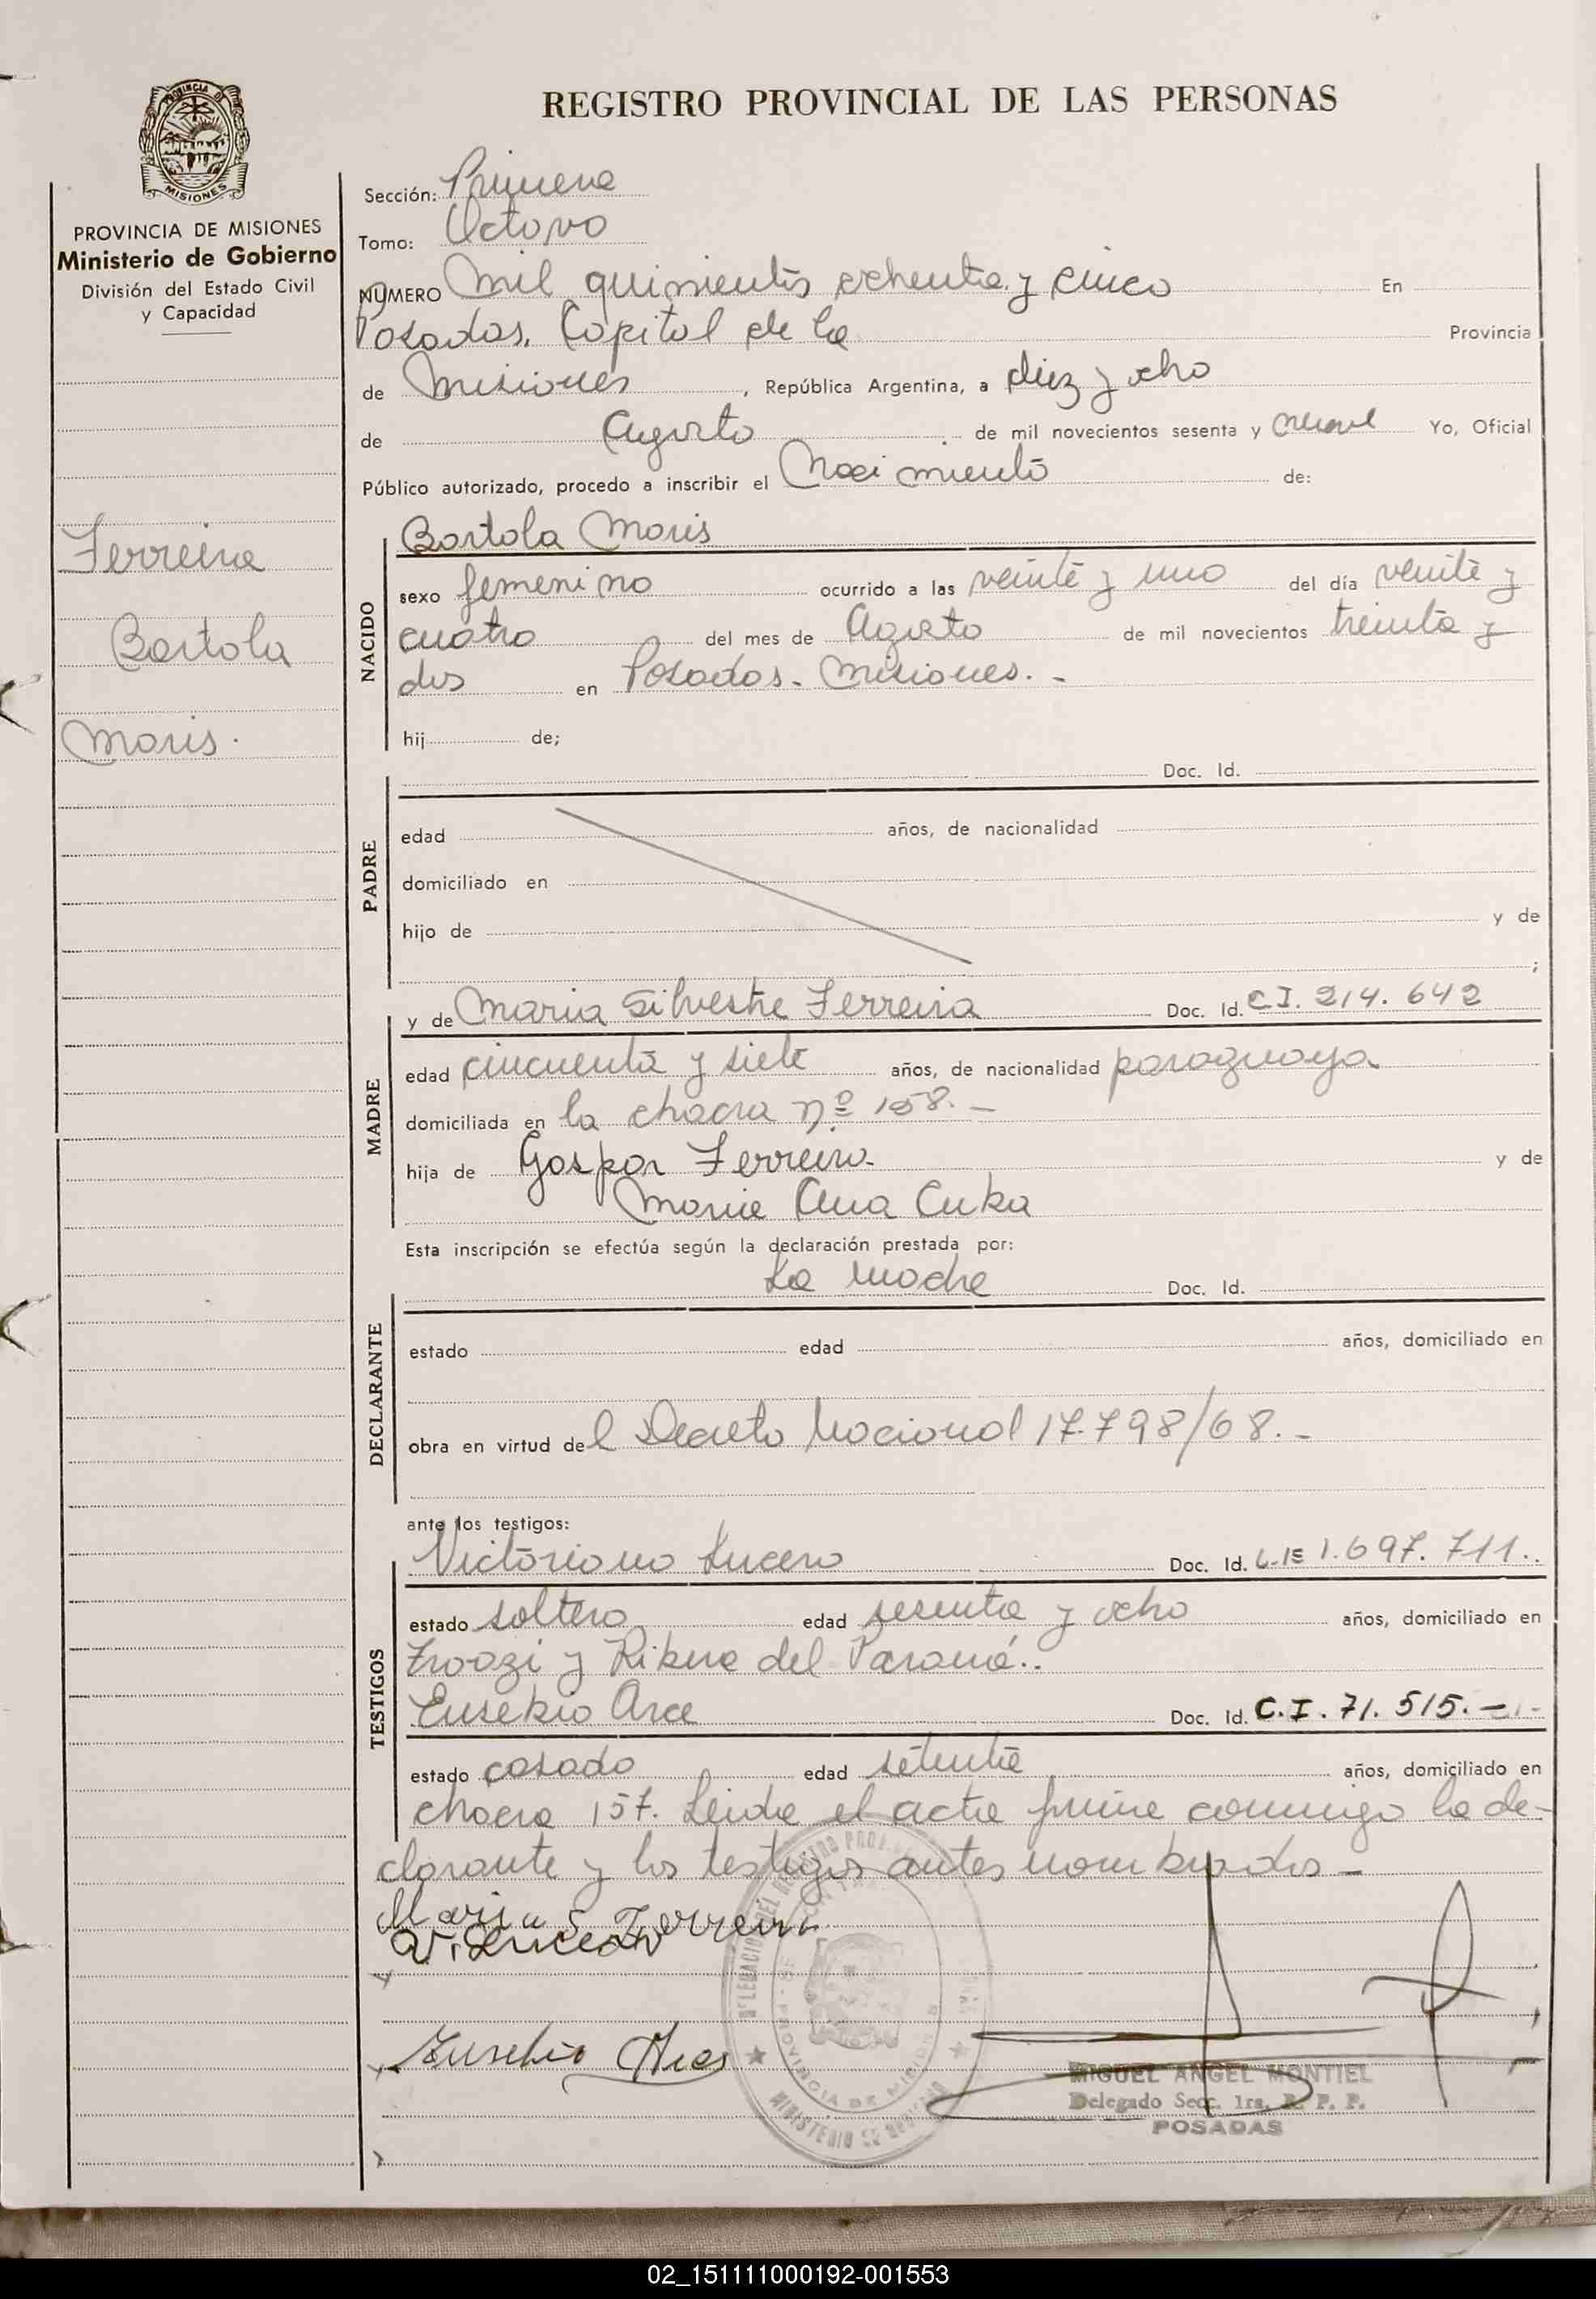 PROVINCIA DE
MISIONES
PROVINCIA DE MISIONES
Ministerio de Gobierno
División del Estado Civil
y Capacidad
Ferreira
Bartola
Moris.
REGISTRO PROVINCIAL DE LAS PERSONAS
Sección: Primera
Tomo: Octavo
NUMERO Mil quinientos ochenta y cinco En
Posadas, Capital de la Provincia
de Misiones, República Argentina, a diez y ocho
de Agosto de mil novecientos sesenta y nueve Yo, Oficial
Público autorizado, procedo a inscribir el Nacimiento de:
NACIDO
Bartola Moris
sexo femenino ocurrido a las veinte y uno del día veinte y
cuatro del mes de Agosto de mil novecientos treinta y
dos en Posadas - Misiones. -
hij de;
PADRE
Doc. Id.
edad años, de nacionalidad
domiciliado en
hijo de y de
;
MADRE
y de Maria Silvestre Ferreira Doc. Id. C.I. 214. 642
edad cincuenta y siete años, de nacionalidad paraguaya
domiciliada en la chacra nº 158. -
hija de Gaspar Ferreira y de
Maria Ana Cuba
DECLARANTE
Esta inscripción se efectúa según la declaración prestada por:
La madre Doc. Id.
estado edad años, domiciliado en
obra en virtud del Decreto Nacional 17.798/68. -
ante los testigos:
TESTIGOS
Victoriano Lucero Doc. Id. L.E 1.697.711..
estado soltero edad sesenta y ocho años, domiciliado en
y Ribera del Paraná..
Eusebio Arce Doc. Id. C.I. 71.515. -
estado casado edad setenta años, domiciliado en
chacra 157. Leida el acta firma conmigo la de-
clarante y los testigos antes nombrados -
Maria S. Ferreira
V. Lucero
Eusebio Arce
PROVINCIA DE MISIONES
MINISTERIO DE GOBIERNO
MIGUEL ANGEL MONTIEL
Delegado Secc. 1ra. R. P. P.
POSADAS
02_151111000192-001553